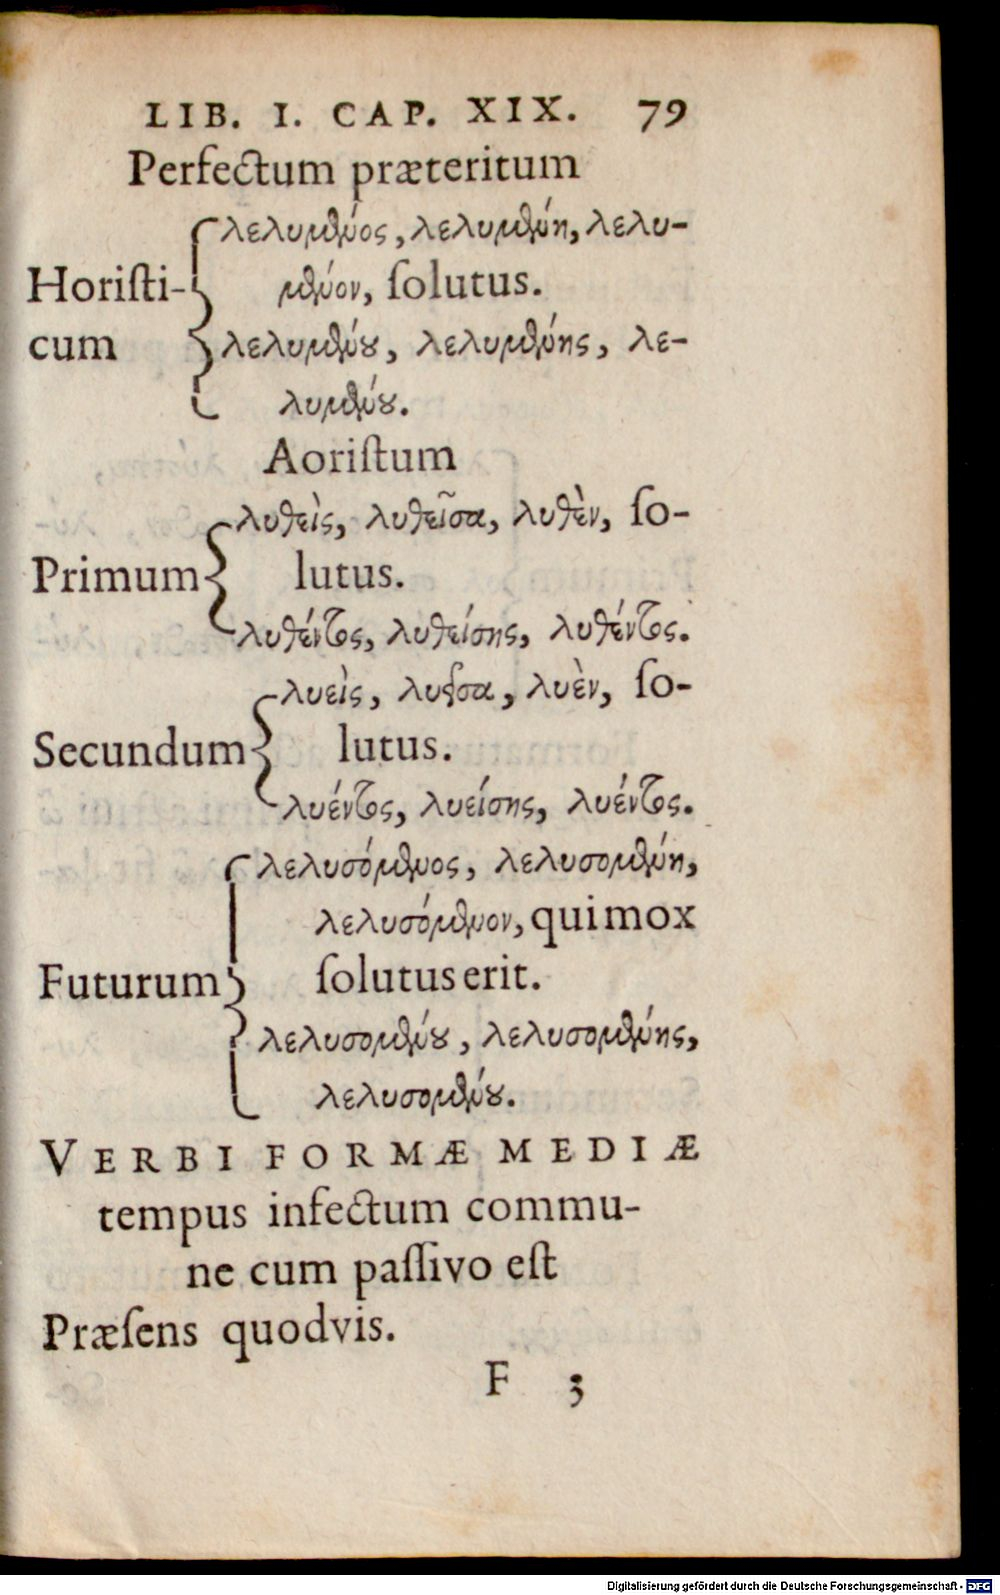 LIB. I. CAP. XIX. 79
Perfectum præteritum
λελυμένος, λελυμένη, λελυ-
Horiſti- μένον, ſolutus.
cum λελυμένου, λελυμένης, λε-
λυμένου.
Aoriſtum
λυθεὶς, λυθεῖσα, λυθὲν, ſo-
Primum lutus.
λυθέντος, λυθείσης, λυθέντος.
λυεὶς, λυεῖσα, λυὲν, ſo-
Secundum lutus.
λυέντος, λυείσης, λυέντος.
λελυσόμενος, λελυσομένη,
λελυσόμενον, qui mox
Futurum ſolutus erit.
λελυσομένου, λελυσομένης,
λελυσομένου.
VERBI FORMÆ MEDIÆ
tempus infectum commu-
ne cum paſſivo eſt
Præſens quodvis.
F 3
Digitalisierung gefördert durch die Deutsche Forschungsgemeinschaft - DFG